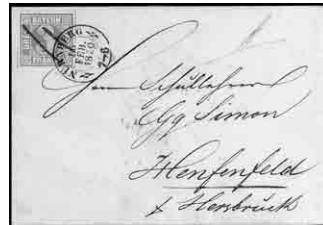 BAYERN
NÜRNBERG
FEB.
7-8
Herrn Schullehrer
Gg Simon
Henfenfeld
b Hersbruck